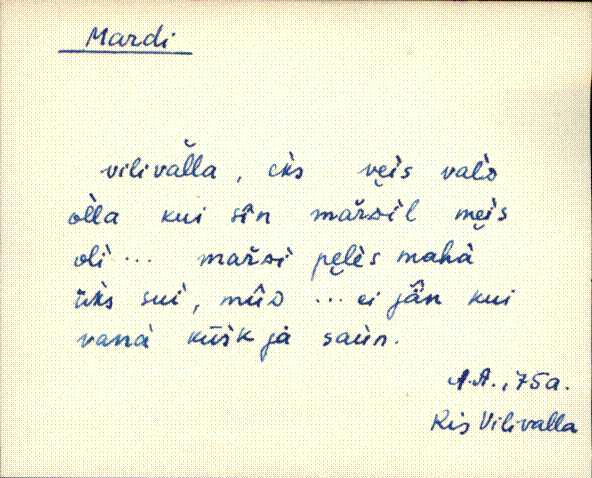 Mardi
vilivàlla, eks veis valà
òlla kui sîn mardil meis
oli ... mardi pelès mahà
üks sui, mûD ... ei jân kui
vanà kūšk jà saùn.
A.A., 75a.
Ris Vilivalla